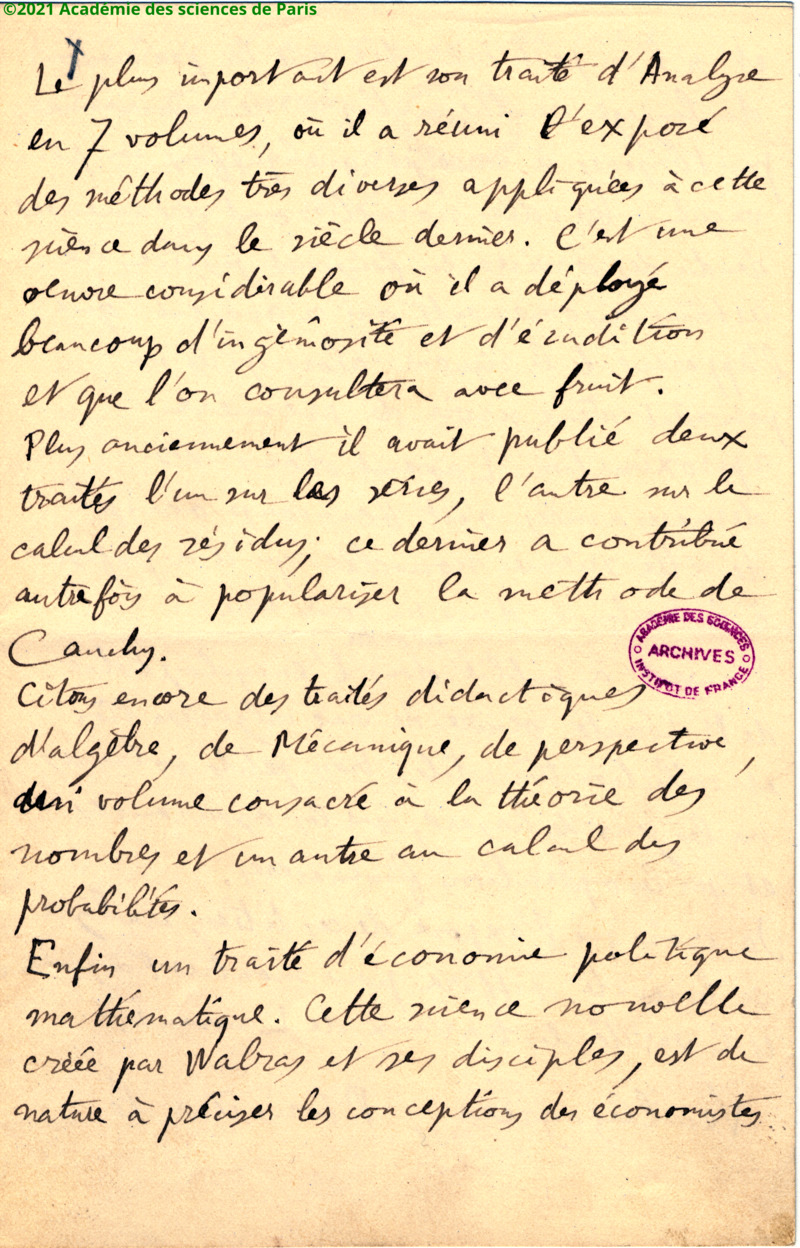 ©2021 Académie des sciences de Paris
Le plus important est son traité d'Analyse
en 7 volumes, où il a réuni l'exposé
des méthodes très diverses appliquées à cette
science dans le siècle dernier. C'est une
oeuvre considérable où il a déployé
beaucoup d'ingéniosité et d'érudition
et que l'on consultera avec fruit.
Plus anciennement il avait publié deux
traités l'un sur les séries, l'autre sur le
calcul des résidus; ce dernier a contribué
autrefois à populariser la méthode de
Cauchy.
ACADÉMIE DES SCIENCES
ARCHIVES
INSTITUT DE FRANCE
Citons encore des traités didactiques
d'algèbre, de Mécanique, de perspective,
un volume consacré à la théorie des
nombres et un autre au calcul des
probabilités.
Enfin un traité d'économie politique
mathématique. Cette science nouvelle
créée par Walras et ses disciples, est de
nature à préciser les conceptions des économistes